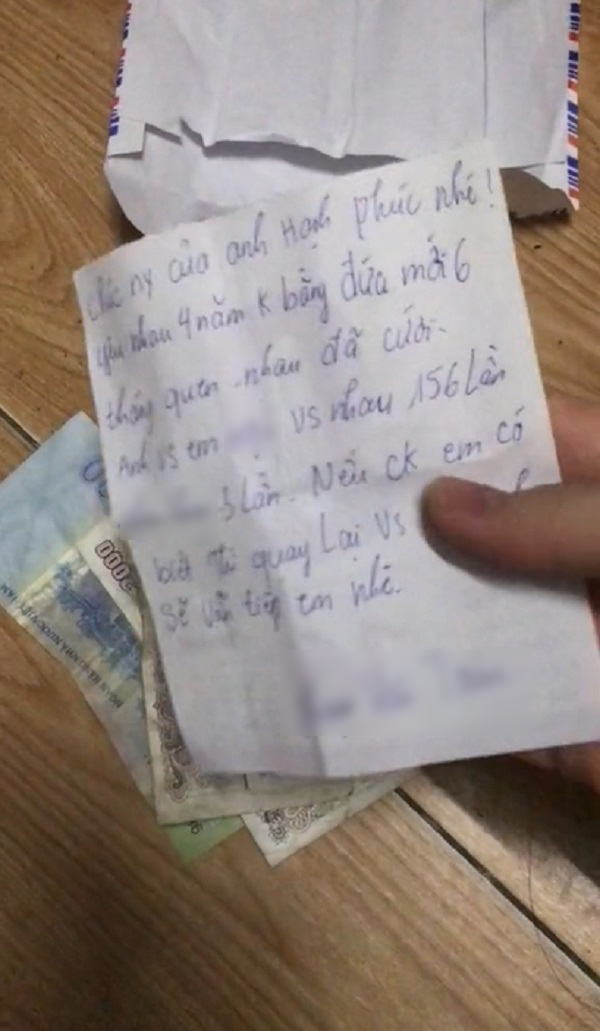 Chúc ny của anh Hạnh phúc nhé!
yêu nhau 4 năm k bằng đứa mới 6
tháng quen nhau đã cưới.
Anh vs em vs nhau 156 lần
3 lần. Nếu ck em có
bỏ thì quay lại vs
sẽ vẫn tiếp em nhé.
000